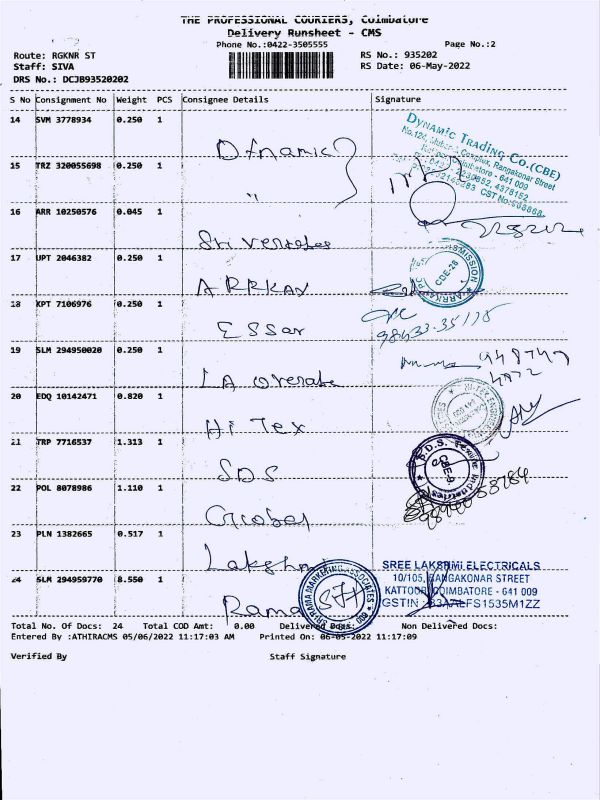 THE PROFESSIONAL COURIERS, Coimbatore
Delivery Runsheet - CMS
Phone No.:0422-3505555 Page No.:2
Route: RGKNR ST RS No.: 935202
Staff: SIVA RS Date: 06-May-2022
DRS No.: DCJB93520202
S No Consignment No Weight PCS Consignee Details Signature
14 SVM 3778934 0.250 1 Dynamic
DYNAMIC TRADING CO.(CBE)
15 TRZ 320055698 0.250 1 "
16 ARR 10250576 0.045 1 Sri
17 UPT 2046382 0.250 1 ARRKAY
CBE-26
18 KPT 7106976 0.250 1 Essar
98433-35115
19 SLM 294950020 0.250 1 LA
20 EDQ 10142471 0.820 1 Hi Tex
21 TRP 7716537 1.313 1 SDS
22 POL 8078986 1.110 1 Global
23 PLN 1382665 0.517 1 Lakshmi
SREE LAKSHMI ELECTRICALS
10/105, RANGAKONAR STREET
KATTOOR, COIMBATORE - 641 009
24 SLM 294959770 8.550 1 Rama
SRI RAMA MARKETING ASSOCIATES
GSTIN
Total No. Of Docs: 24 Total COD Amt: 0.00 Delivered Docs: Non Delivered Docs:
Entered By :ATHIRACMS 05/06/2022 11:17:03 AM Printed On: 06-05-2022 11:17:09
Verified By Staff Signature